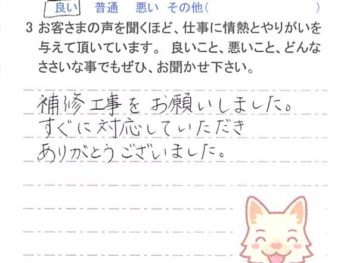 良い 普通 悪い その他( )
3 お客さまの声を聞くほど、仕事に情熱とやりがいを
与えて頂いています。 良いこと、悪いこと、どんな
ささいな事でもぜひ、お聞かせ下さい。
補修工事をお願いしました。
すぐに対応していただき
ありがとうございました。